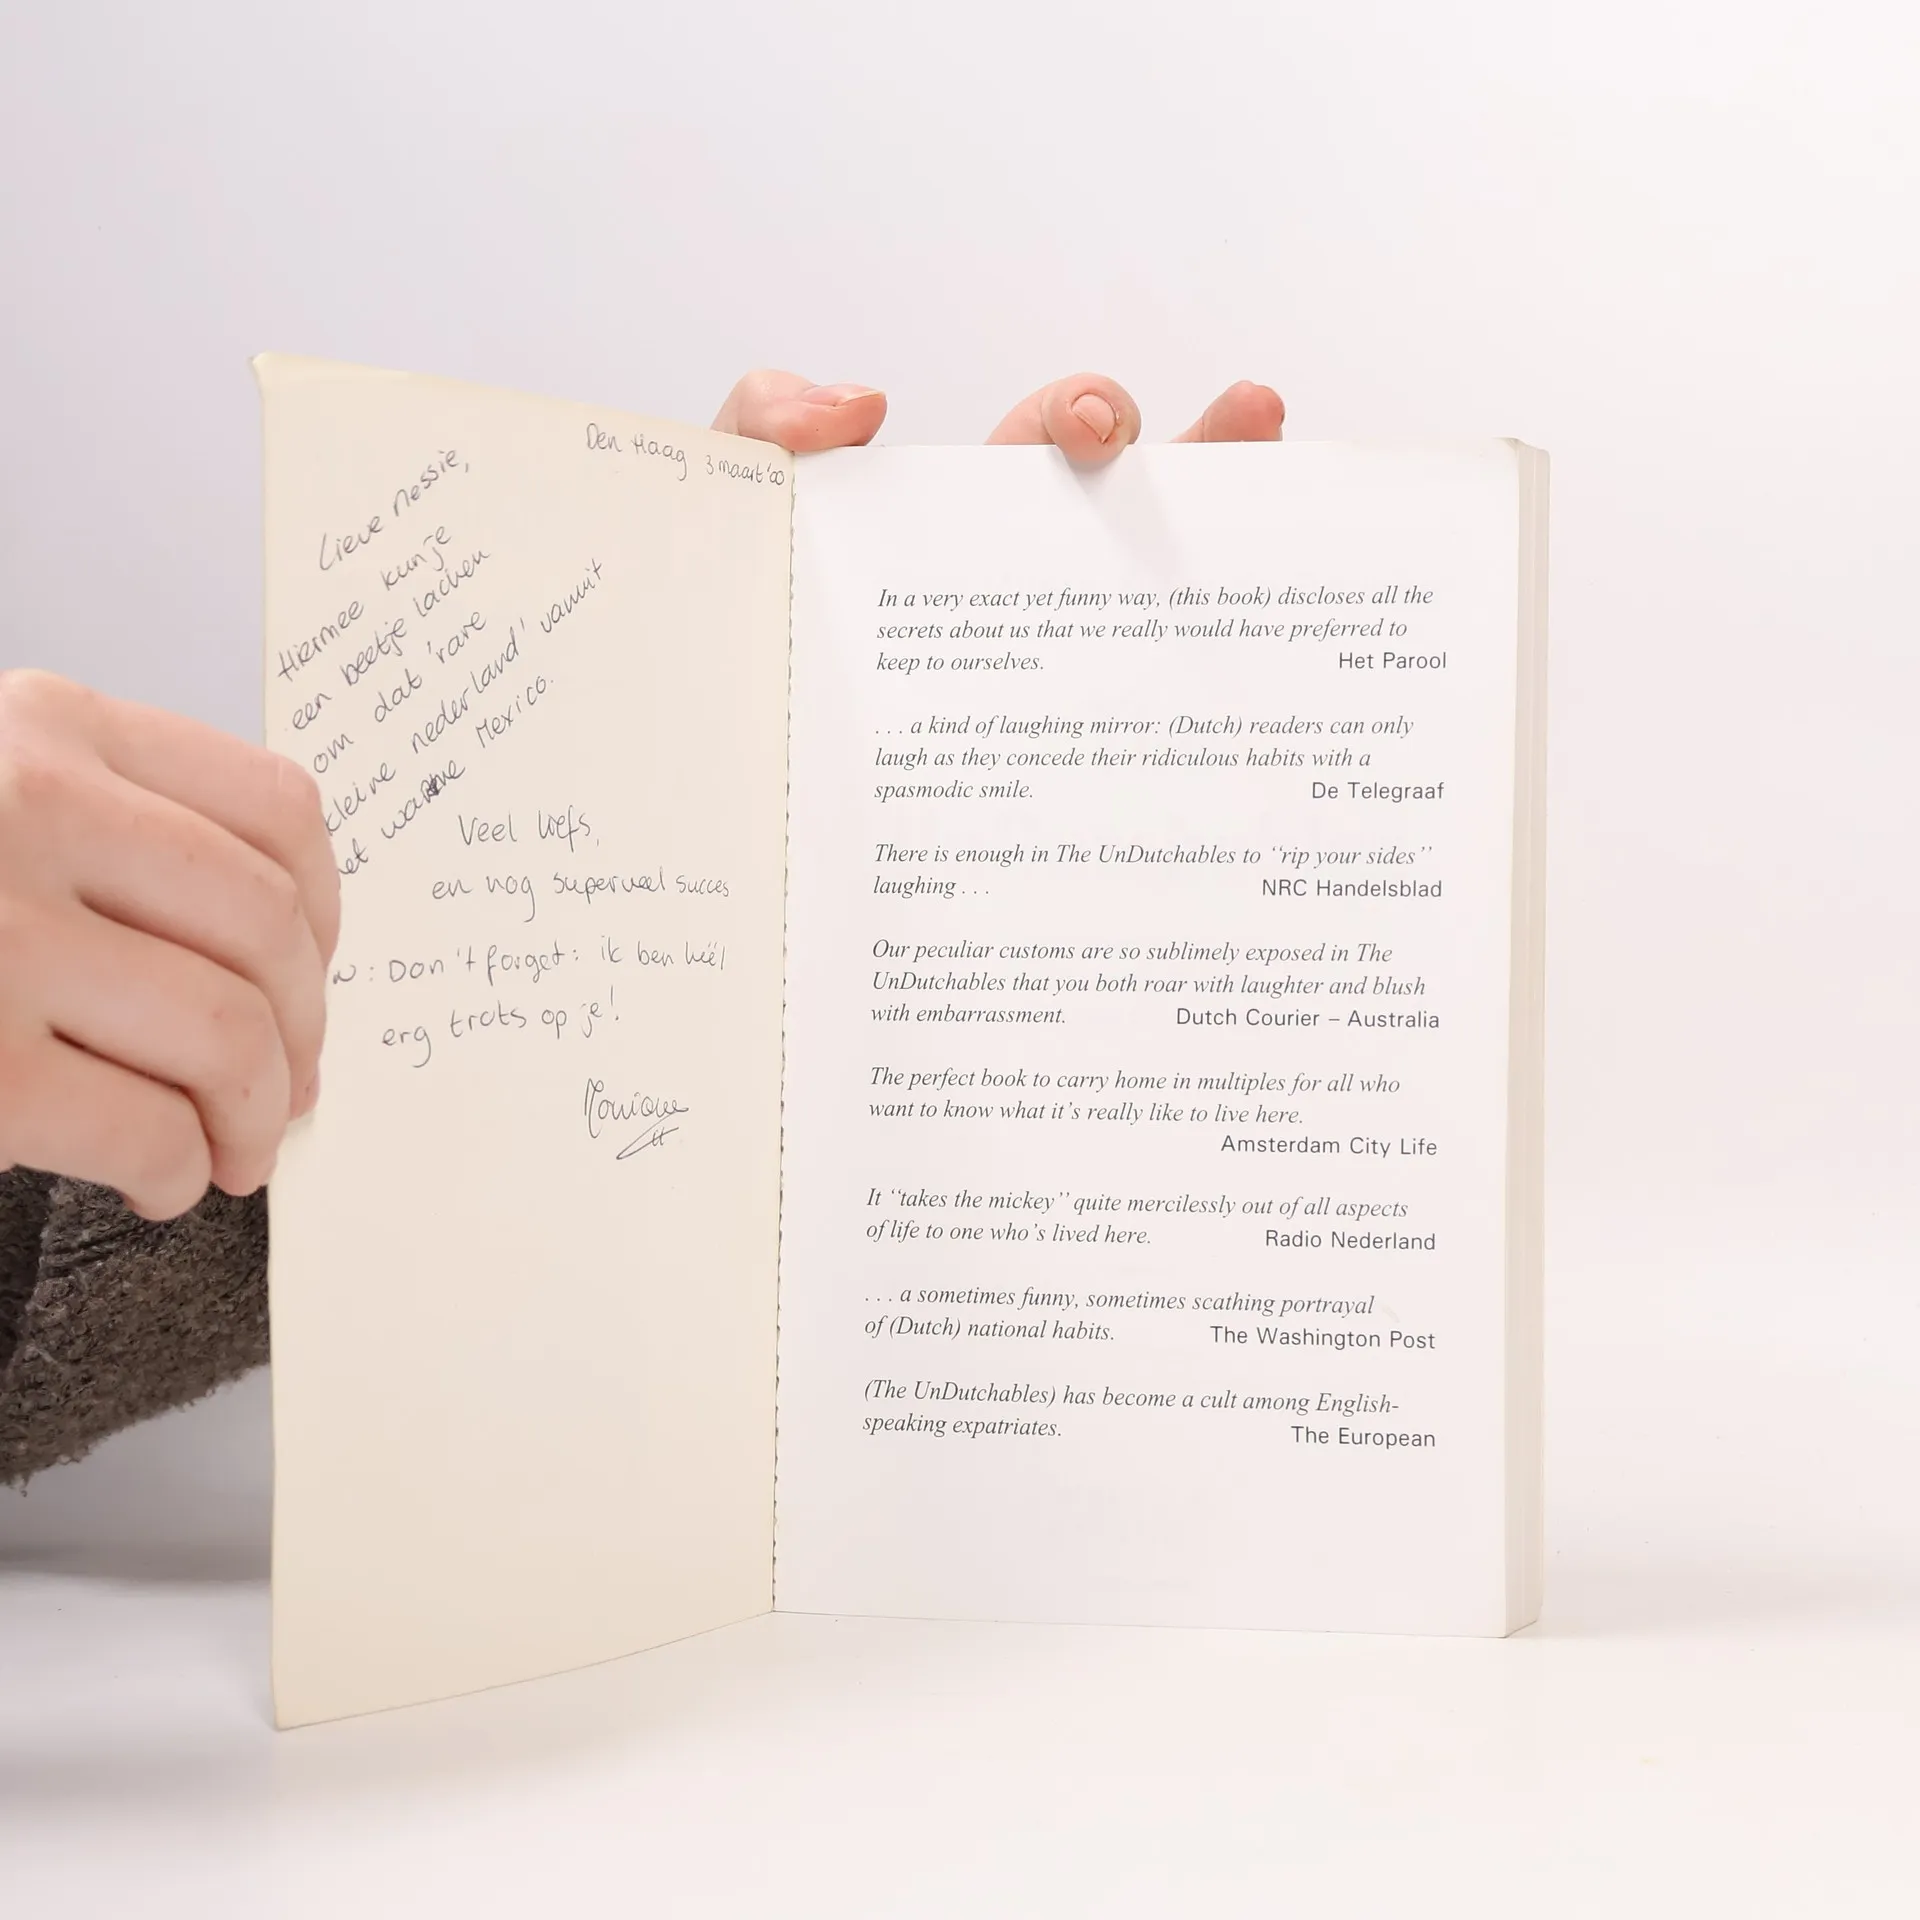 Den Haag 3 maart '00
Lieve Nessie,
Hiermee kun je
een beetje lachen
om dat 'rare
kleine nederland' vanuit
het warme Mexico.
Veel liefs,
en nog superveel succes
: Don't forget: ik ben héél
erg trots op je!
Monique
In a very exact yet funny way, (this book) discloses all the
secrets about us that we really would have preferred to
keep to ourselves. Het Parool
. . . a kind of laughing mirror: (Dutch) readers can only
laugh as they concede their ridiculous habits with a
spasmodic smile. De Telegraaf
There is enough in The UnDutchables to “rip your sides”
laughing . . . NRC Handelsblad
Our peculiar customs are so sublimely exposed in The
UnDutchables that you both roar with laughter and blush
with embarrassment. Dutch Courier – Australia
The perfect book to carry home in multiples for all who
want to know what it’s really like to live here.
Amsterdam City Life
It “takes the mickey” quite mercilessly out of all aspects
of life to one who’s lived here. Radio Nederland
. . . a sometimes funny, sometimes scathing portrayal
of (Dutch) national habits. The Washington Post
(The UnDutchables) has become a cult among English-
speaking expatriates. The European